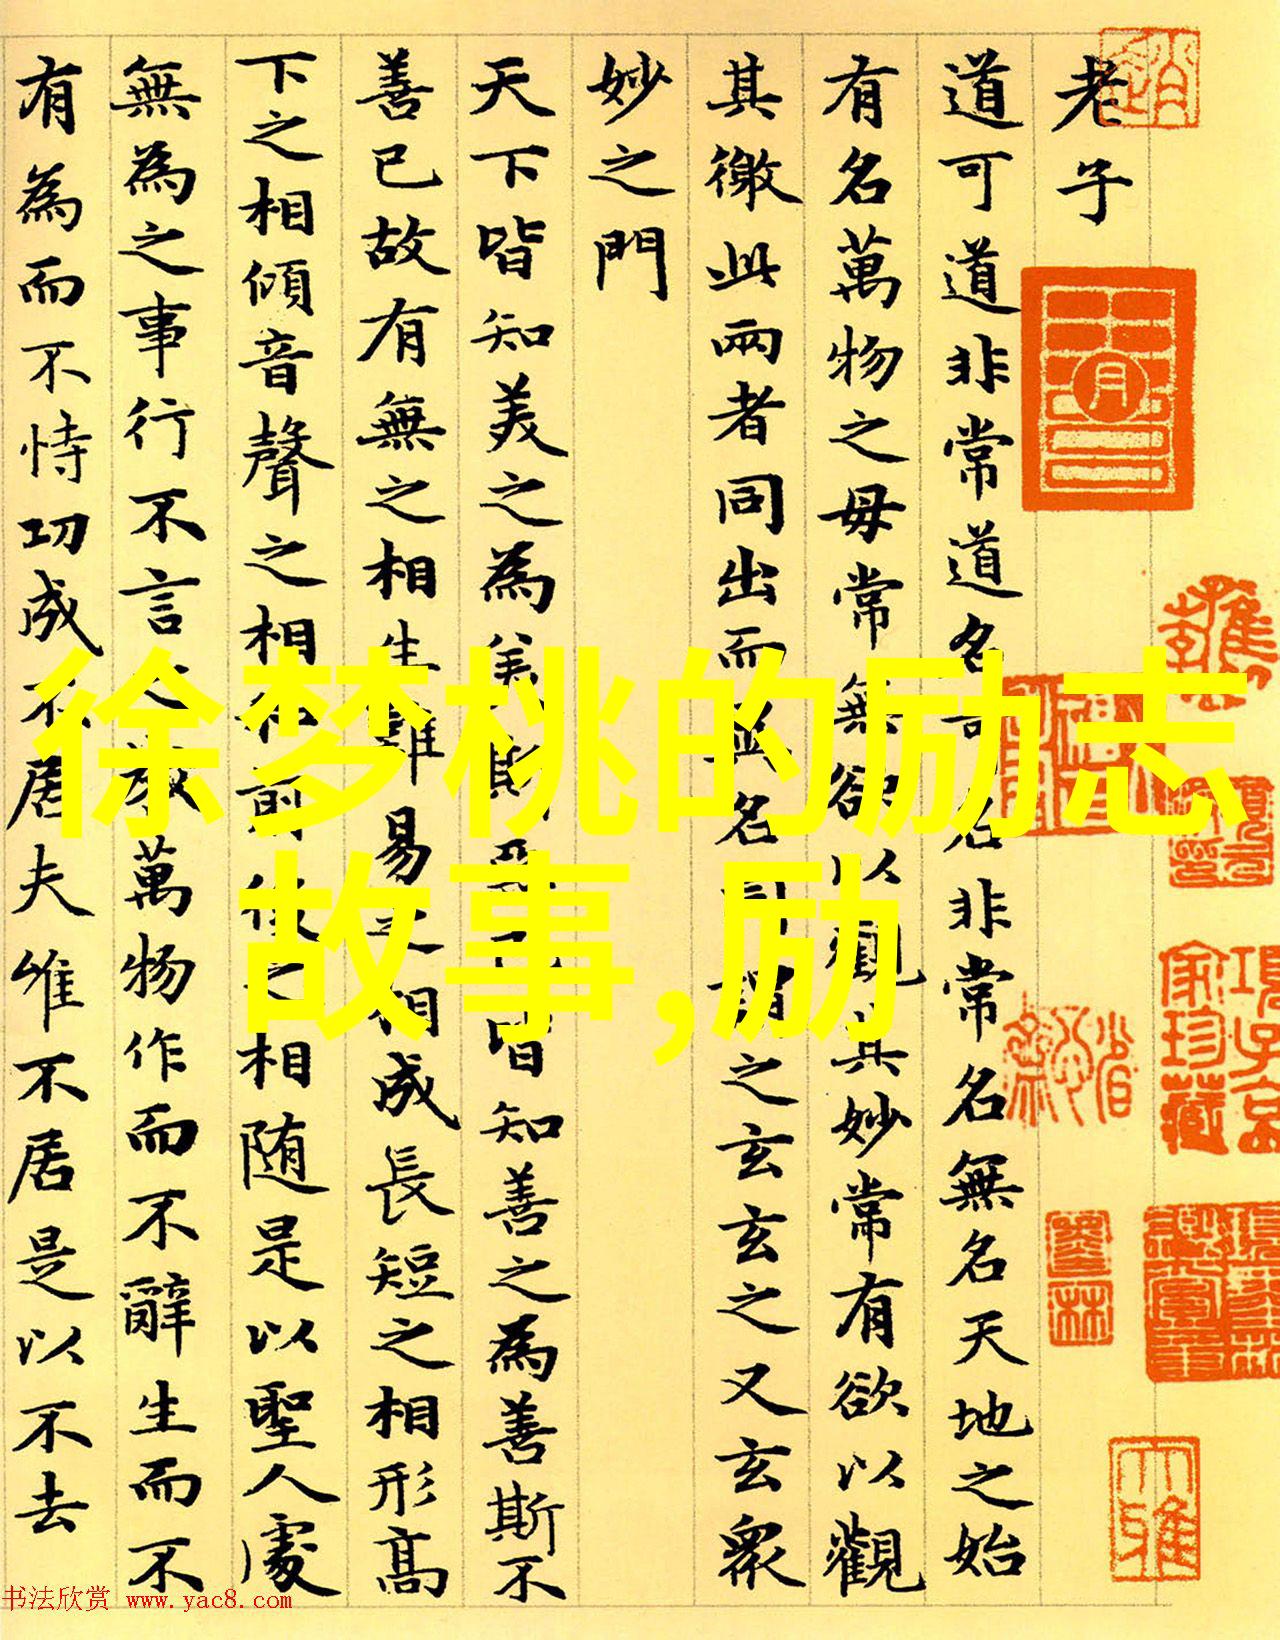 老子
道可道非常道名可名非常名無名天地之始
有名萬物之母常無欲以觀其妙常有欲以觀
其徼此兩者同出而名同謂之玄玄之又玄衆
妙之門
天下皆知美之為美斯惡已皆知善之為善斯不
善已故有無之相生難易之相成長短之相形髙
下之相傾音聲之相和前後之相随是以聖人處
無為之事行不言之教萬物作而不辭生而不
有為而不恃功成不居夫唯不居是以不去
徐梦桃的励志
故事,励
項子京
家珍藏
书法欣赏 www.yac8.com